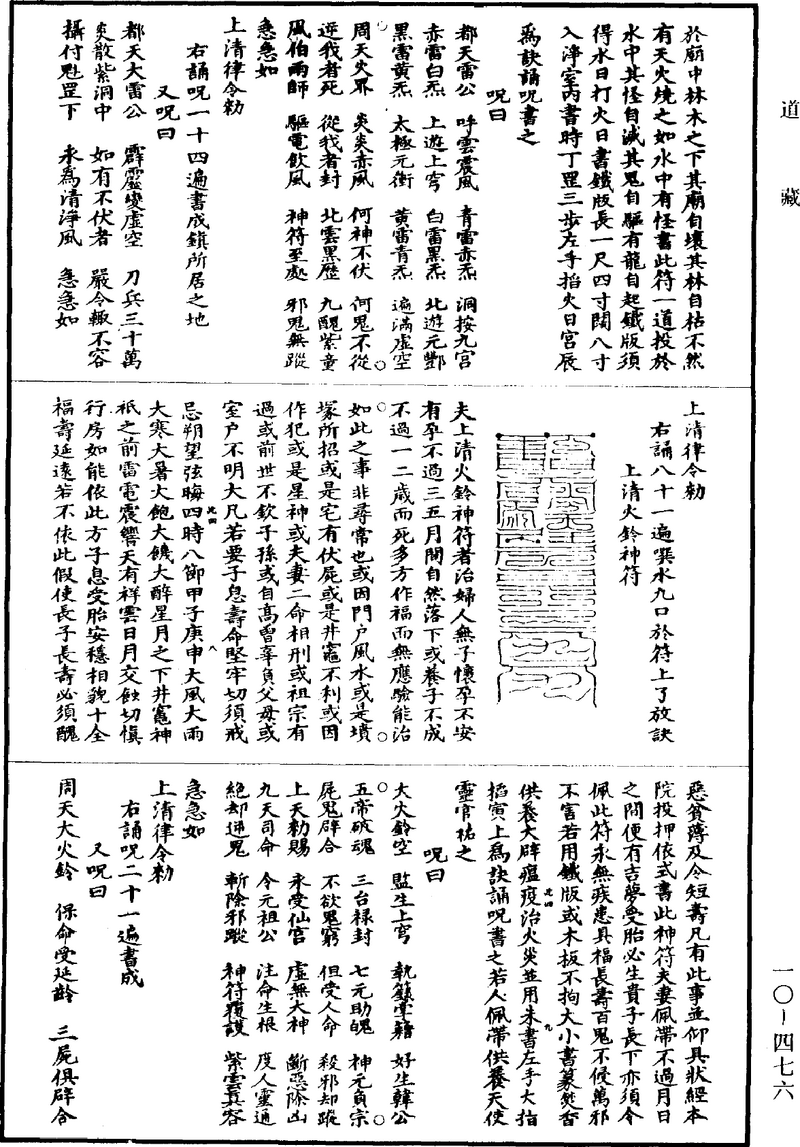 道藏
一〇－四七六
於廟中林木之下其廟自壞其林自枯不然
有天火燒之如水中有怪書此符一道投於
水中其怪自滅其鬼自驅有龍自起鐵版須
得水日打火日書鐵版長一尺四寸闊八寸
入淨室丙書時丁罡三步左手掐火日宮辰
為訣誦呪書之
呪曰
都天雷公 呼雲震風 青雷赤炁 洞按九宮
赤雷白炁 上遊上穹 白雷黑炁 北遊元酆
黑雷黃炁 太極元衝 黃雷青炁 遍滿虛空
周天火界 炎炎赤風 何神不伏 何鬼不從
逆我者死 從我者封 北雲黑歷 九醜紫童
風伯雨師 驅電飲風 神符至處 邪鬼無蹤
急急如
上清律令勑
右誦呪一十四遍書成鎮所居之地
又呪曰
都天大雷公 霹靂變虛空 刀兵三十萬
炎散紫洞中 如有不伏者 嚴令輙不容
攝付魁罡下 永為清淨風 急急如
上清律令勑
右誦八十一遍噀水九口於符上了放訣
上清火鈴神符
夫上清火鈴神符者治婦人無子懷孕不安
有孕不過三五月間自然落下或養子不成
不過一二歲而死多方作福而無應驗能治
如此之事非尋常也或因門户風水或是墳
塚所招或是宅有伏屍或是井竈不利或因
作犯或是星神或夫妻二命相刑或祖宗有
過或前世不欽子孫或自高曾辜負父母或
室户不明大凡若要子息壽命堅牢切須戒
忌朔望弦晦四時八節甲子庚申大風大雨
大寒大暑大飽大饑大醉星月之下井竈神
祇之前雷電震響天有祥雲日月交蝕切慎
行房如能依此方子息受胎安穩相貌十全
福壽延遠若不依此假使長子長壽必須醜
惡貧薄及令短壽凡有此事並仰具狀經本
院投押依式書此神符夫妻佩帶不過月日
之間便有吉夢受胎必生貴子長下亦須令
佩此符永無疾患具福長壽百鬼不侵萬邪
不害若用鐵版或木板不拘大小書篆焚香
供養大辟瘟疫治火災並用朱書左手大指
掐寅上為訣誦呪書之若人佩帶供養天使
靈官祐之
呪曰
大火鈴空 監生上穹 執籙掌籍 好生韓公
五帝破魂 三台祿封 七元助魄 神元負宗
屍鬼辟合 不欲鬼窮 但受人命 殺邪却蹤
上天勑賜 永受仙宮 虛無大神 斷惡除凶
九天司命 令元祖公 注命生根 度人靈通
絕却逆鬼 斬除邪蹤 神符覆護 紫雲真容
急急如
上清律令勑
右誦呪二十一遍書成
又呪曰
周天大火鈴 保命受延齡 三屍俱辟合